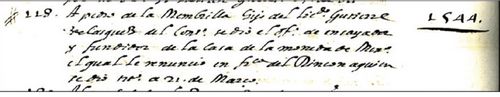 118. A pedro de la Membrilla hijo del liçdo Gutierre
Velazquez del Consº. se dio el offº. de ensayador
y fundidor de la Casa de la moneda de Mexco.
el qual le renuncio en fabor del Rincon a quien
se dio nos. a 21 de Março.
1544.